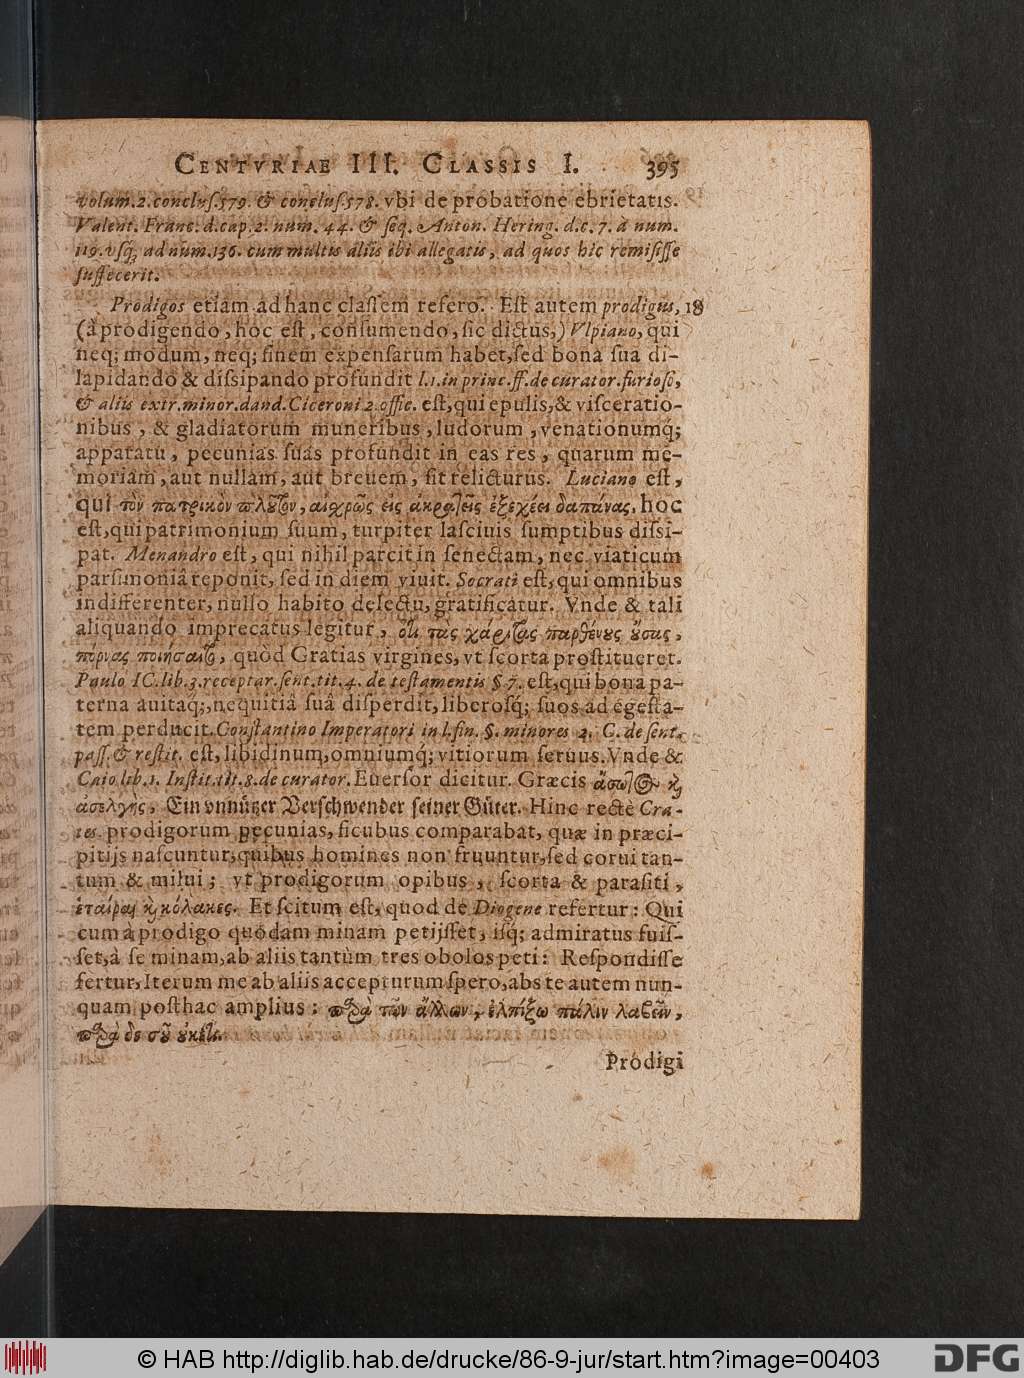 CENTVRIAE III. CLASSIS I. 395
volum.2.concluſ.579. & concluſ.578. vbi de probatione ebrietatis.
Valent. Franc. d.cap.2. num. 44. & ſeq. Anton. Hering. d.c. 7. à num.
119. vſq; ad num.136. cum multis aliis ibi allegatis, ad quos hic remiſiſſe
ſuffecerit.
Prodigos etiam ad hanc claſſem refero. Eſt autem prodigus, 18
(à prodigendo, hoc eſt, conſumendo, ſic dictus,) Vlpiano, qui
neq; modum, neq; finem expenſarum habet, ſed bona ſua di-
lapidando & diſsipando profundit l.1. in princ. ff. de curator. furioſo,
& aliis extr. minor. dand. Ciceroni 2. offic. eſt, qui epulis, & viſceratio-
nibus, & gladiatorum muneribus, ludorum, venationumq́;
apparatu, pecunias ſuas profundit in eas res, quarum me-
moriam, aut nullam, aut breuem, ſit relicturus. Luciano eſt,
qui τὸν πατρικὸν πλοῦτον, αἰσχρῶς εἰς ἀκρατεῖς ἐξεχέει δαπάνας, hoc
eſt, qui patrimonium ſuum, turpiter laſciuis ſumptibus diſsi-
pat. Menandro eſt, qui nihil parcit in ſenectam, nec viaticum
parſimoniâ reponit, ſed in diem viuit. Socrati eſt, qui omnibus
indifferenter, nullo habito delectu, gratificatur. Vnde & tali
aliquando imprecatus legitur, ὅτι τὰς χάριτας παρθένους οὔσας,
πόρνας ποιήσαιτο, quòd Gratias virgines, vt ſcorta proſtitueret.
Paulo IC. lib.3. receptar. ſent. tit.4. de teſtamentis §.7. eſt, qui bona pa-
terna auitaq;, nequitiâ ſuâ diſperdit, liberoſq́; ſuos ad egeſta-
tem perducit. Conſtantino Imperatori in l. fin. §. minores 2. C. de ſent.
paſſ. & reſtit. eſt, libidinum, omniumq́; vitiorum ſeruus. Vnde &
Caio lib.1. Inſtit. tit.8. de curator. Euerſor dicitur. Græcis ἄσωτος καὶ
ἀσελγὴς, Ein vnnützer Verſchwender ſeiner Güter. Hinc rectè Cra-
tes prodigorum pecunias, ficubus comparabat, quæ in præci-
pitijs naſcuntur, quibus homines non fruuntur, ſed corui tan-
tum & milui; vt prodigorum opibus, ſcorta & paraſiti,
ἑταίραι καὶ κόλακες. Et ſcitum eſt, quod de Diogene refertur: Qui
cum à prodigo quodam minam petijſſet, iſq; admiratus fuiſ-
ſet, à ſe minam, ab aliis tantùm tres obolos peti: Reſpondiſſe
fertur, Iterum me ab aliis accepturum ſpero, abs te autem nun-
quam poſthac amplius: παρὰ τῶν ἄλλων, ἐλπίζω πάλιν λαβεῖν,
παρὰ δὲ σοῦ οὐκέτι.
Prodigi
© HAB http://diglib.hab.de/drucke/86-9-jur/start.htm?image=00403
DFG